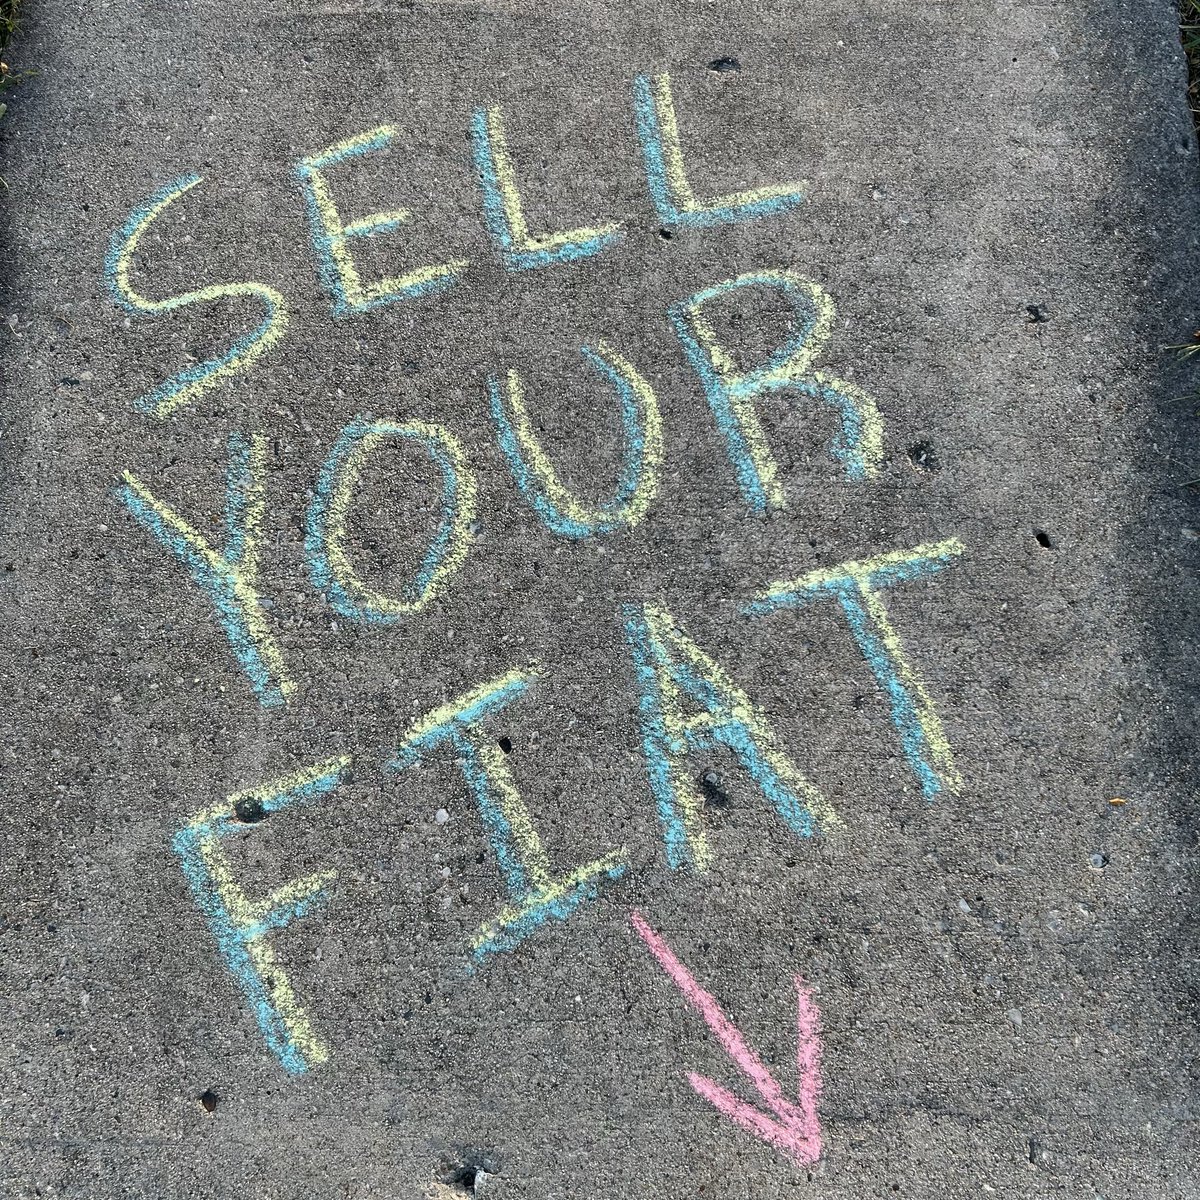 SELL
YOUR
FIAT